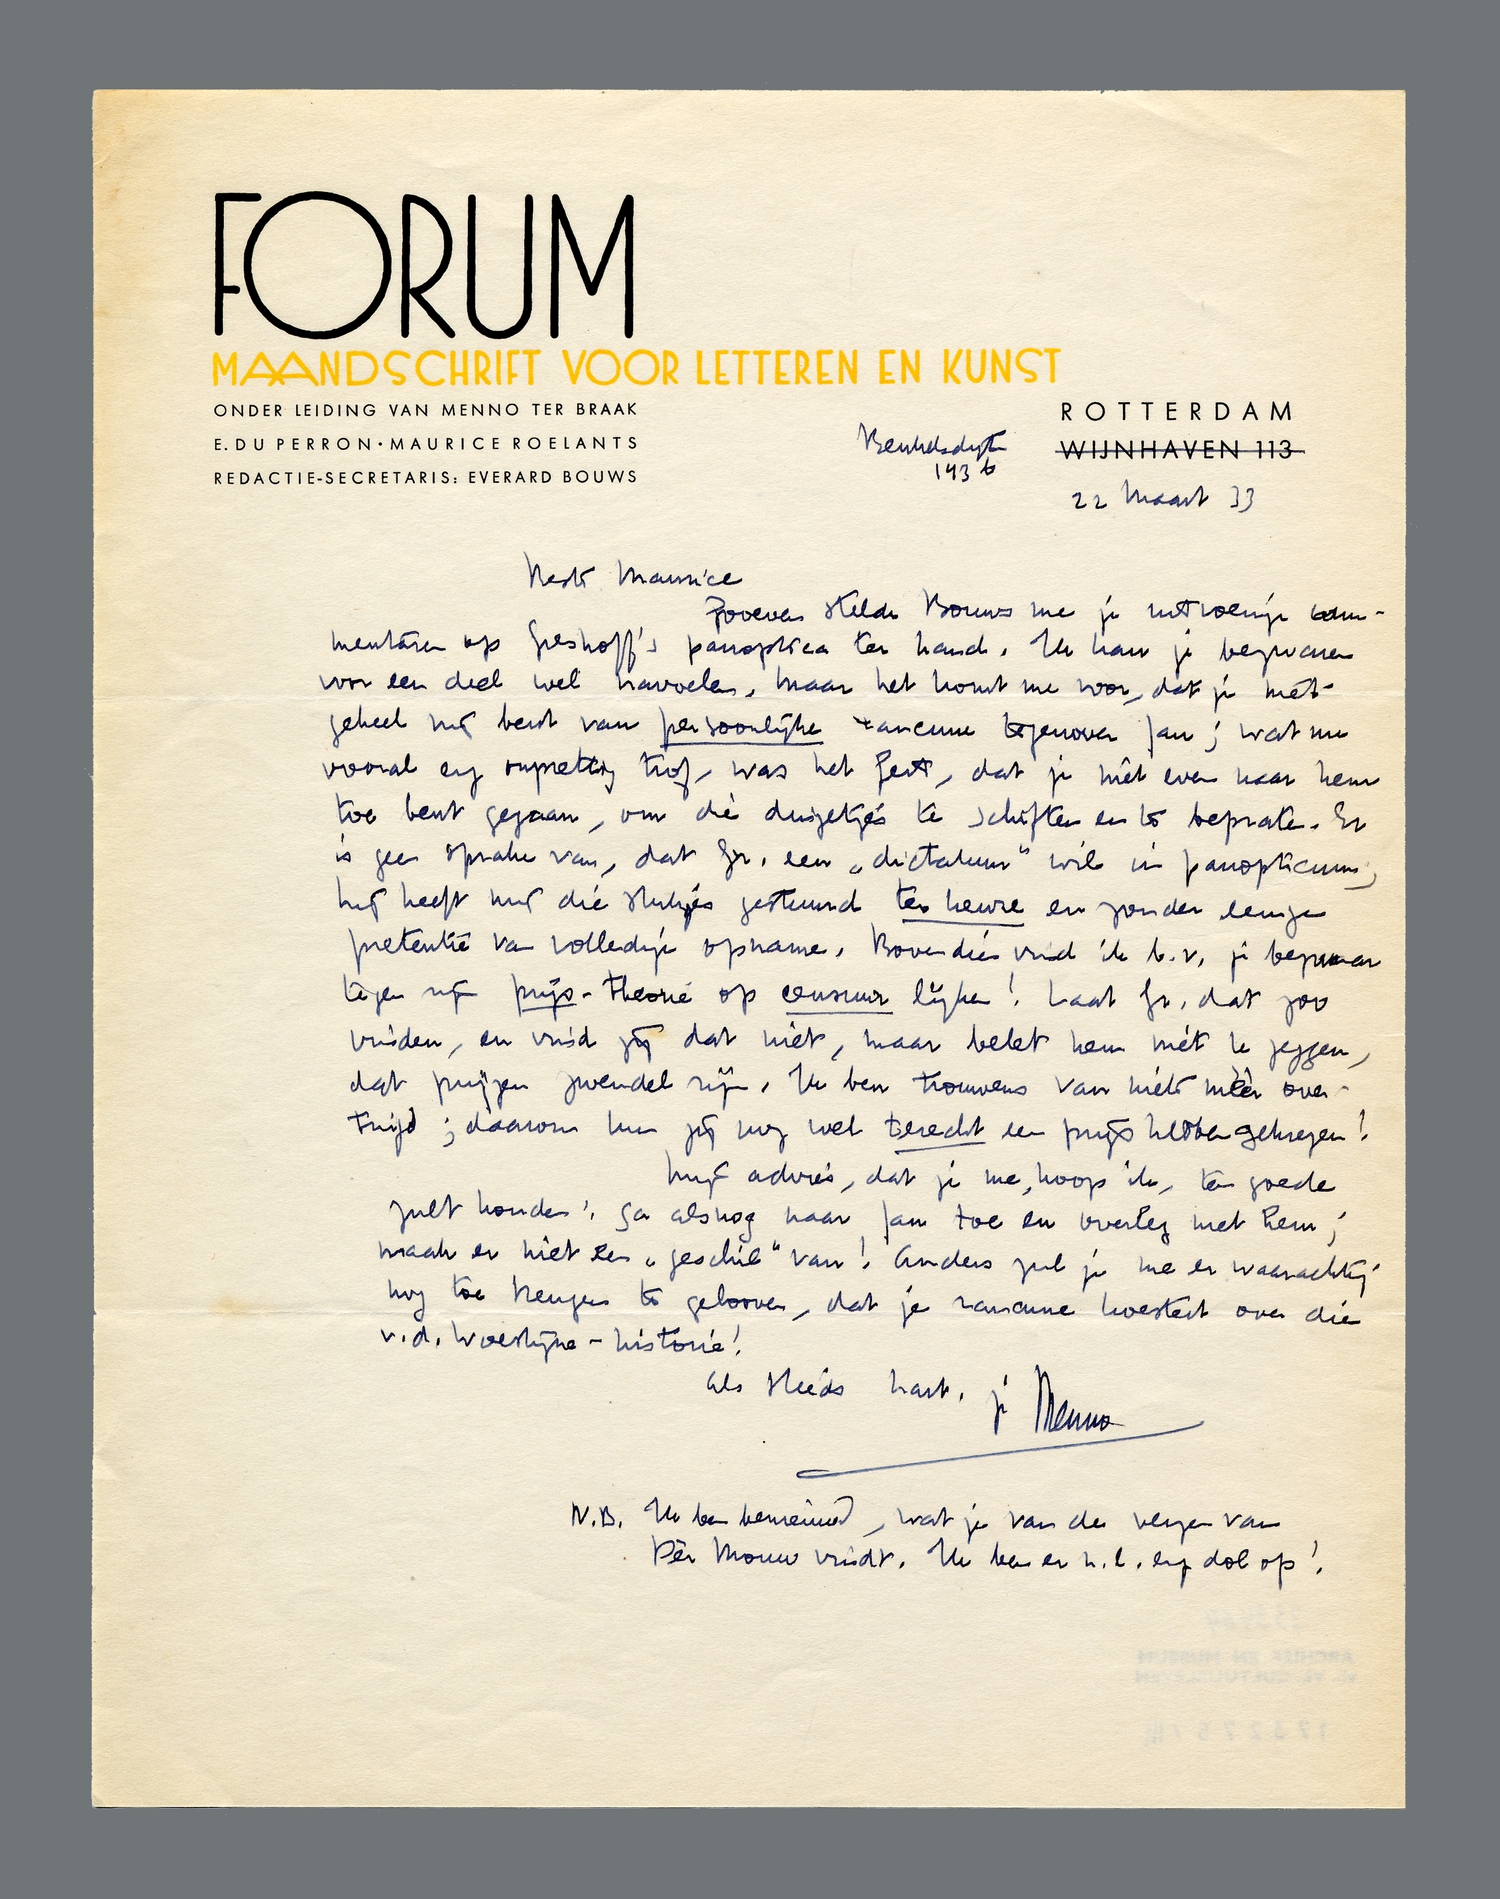 FORUM
MAANDSCHRIFT VOOR LETTEREN EN KUNST
ONDER LEIDING VAN MENNO TER BRAAK
E. DU PERRON · MAURICE ROELANTS
REDACTIE-SECRETARIS: EVERARD BOUWS
ROTTERDAM
WIJNHAVEN 113
Beukelsdijk
143 b
22 Maart 33
Beste Maurice
Zooeven stelde Bouws me je uitvoerige com-
mentaren op Greshoff's panoptica ter hand. Ik kan je bezwaren
voor een deel wel navoelen. Maar het komt me voor, dat je niet
geheel vrij bent van persoonlijke rancune tegenover Jan; wat me
vooral erg onprettig trof, was het feit, dat je niet even naar hem
toe bent gegaan, om die dingetjes te schiften en te bepraten. Er
is geen sprake van, dat Gr. een „dictatuur" wil in panopticum;
hij heeft mij die stukjes gestuurd ter keuze en zonder eenige
pretentie van volledige opname. Bovendien vind ik b.v. je bezwaar
tegen zijn prijs-theorie op censuur lijken! Laat Gr. dat zoo
vinden, en vind jij dat niet, maar belet hem niet te zeggen,
dat prijzen zwendel zijn. Ik ben trouwens van niets méér over-
tuigd; daarom kun jij nog wel terecht een prijs hebben gekregen!
Mijn advies, dat je me, hoop ik, ten goede
zult houden: ga alsnog naar Jan toe en overleg met hem;
maak er niet een „geschil" van! Anders zul je me er waarachtig
nog toe brengen te gelooven, dat je rancune koestert over die
v.d. Woestijne-historie!
Als steeds hart. je Menno
N.B. Ik ben benieuwd, wat je van de verzen van
Dèr Mouw vindt. Ik ben er n.l. erg dol op!